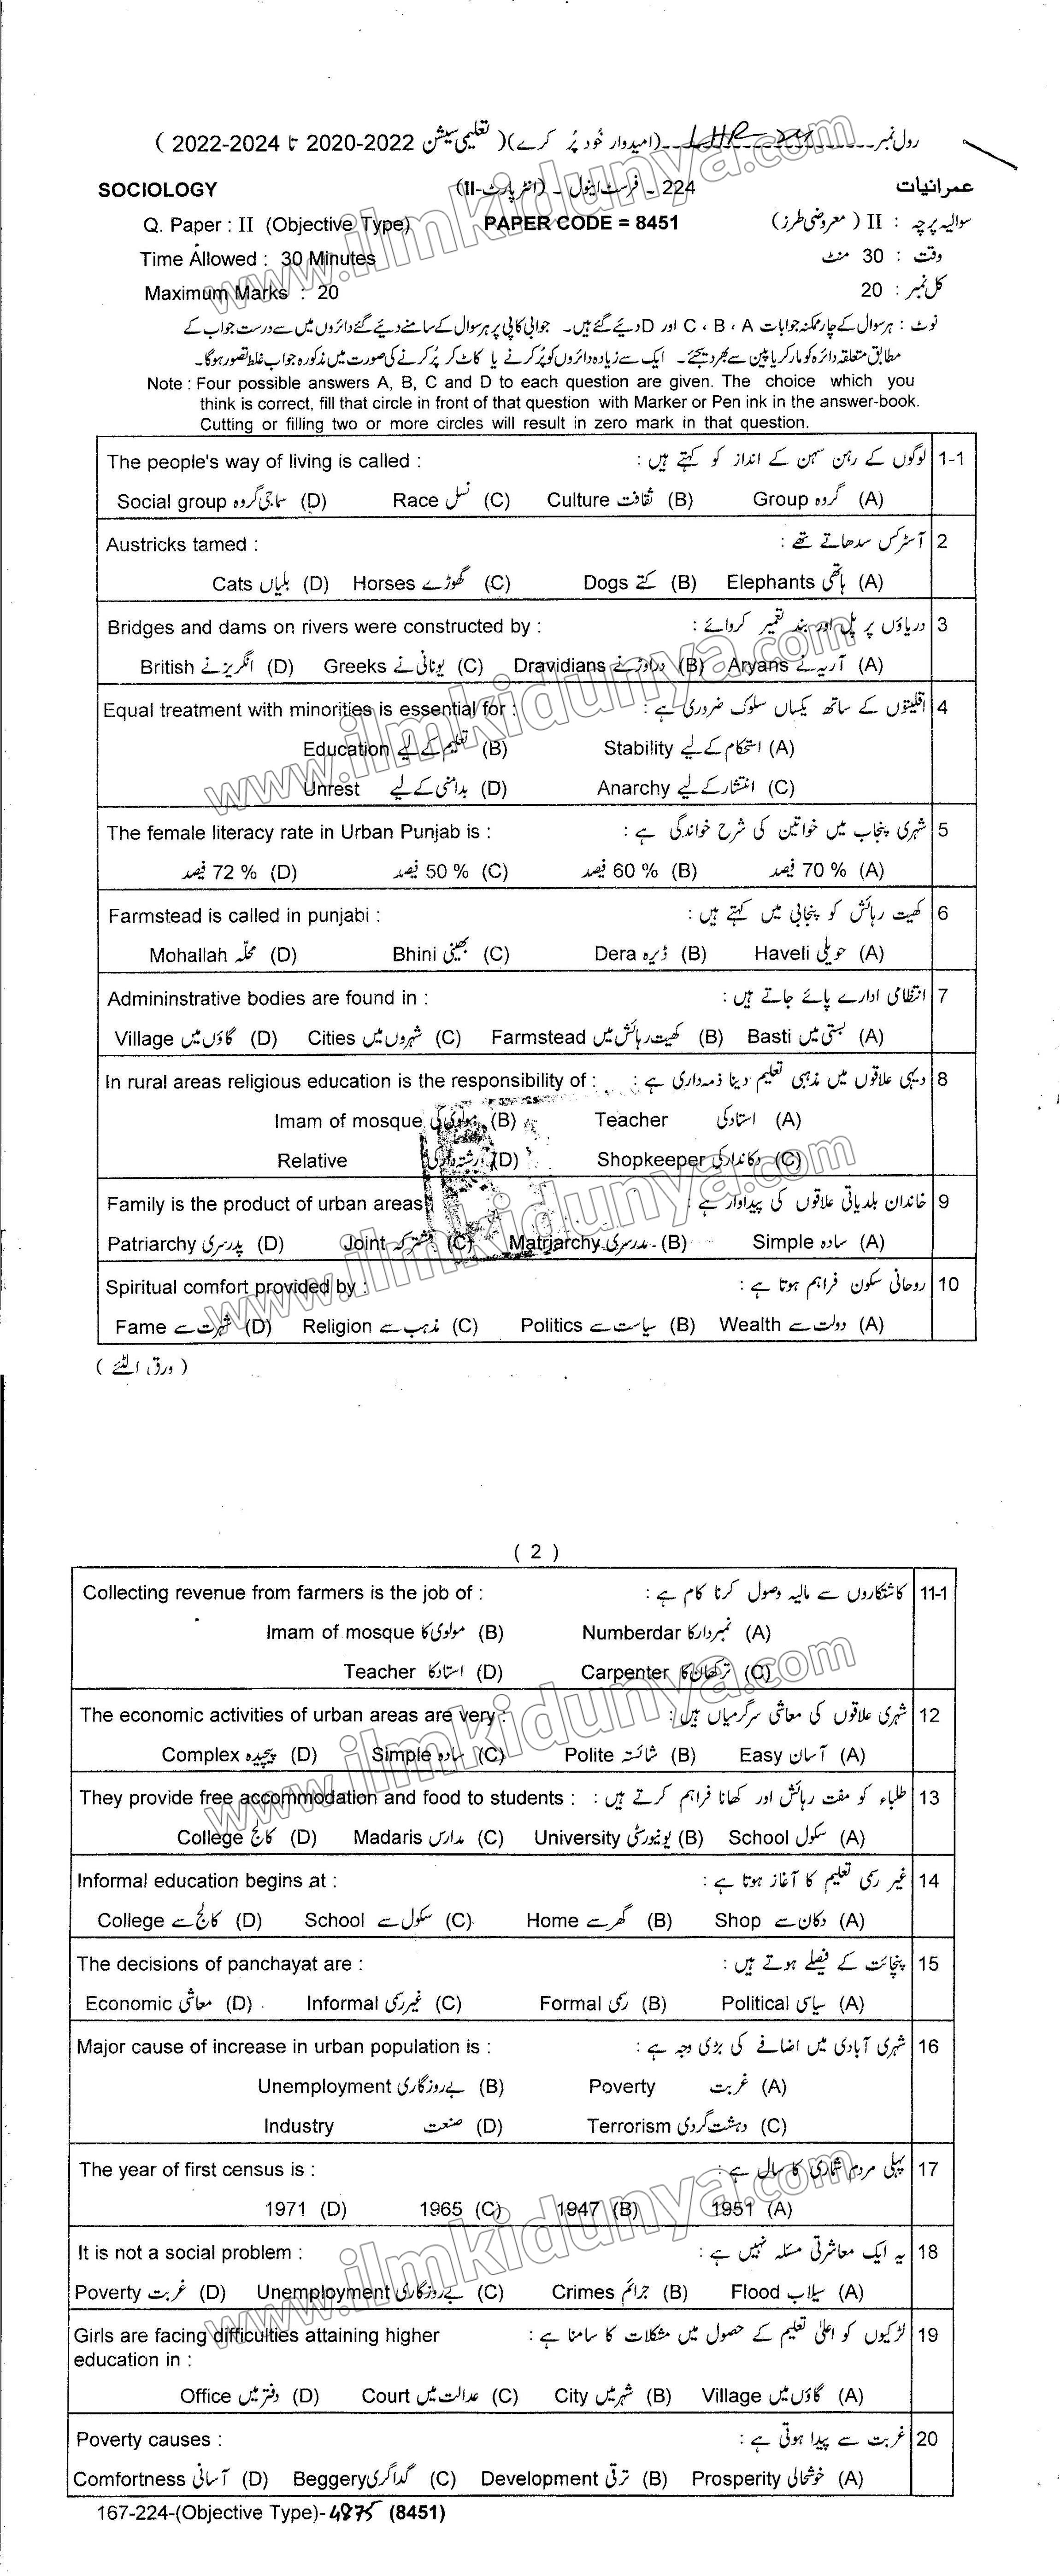 رول نمبر LHR (امیدوار خود پُر کرے) (تعلیمی سیشن 2020-2022 تا 2022-2024)
SOCIOLOGY 224 - فرسٹ اینول - (انٹر پارٹ-II) عمرانیات
Q. Paper : II (Objective Type) PAPER CODE = 8451 سوالیہ پرچہ : II (معروضی طرز)
Time Allowed : 30 Minutes وقت : 30 منٹ
Maximum Marks : 20 کل نمبر : 20
نوٹ : ہر سوال کے چار ممکنہ جوابات A ، B ، C اور D دیئے گئے ہیں۔ جوابی کاپی پر ہر سوال کے سامنے دیئے گئے دائروں میں سے درست جواب کے
مطابق متعلقہ دائرہ کو مارکر یا پین سے بھر دیجئے۔ ایک سے زیادہ دائروں کو پُر کرنے یا کاٹ کر پُر کرنے کی صورت میں مذکورہ جواب غلط تصور ہوگا۔
Note : Four possible answers A, B, C and D to each question are given. The choice which you
think is correct, fill that circle in front of that question with Marker or Pen ink in the answer-book.
Cutting or filling two or more circles will result in zero mark in that question.
The people's way of living is called : لوگوں کے رہن سہن کے انداز کو کہتے ہیں : 1-1
Social group سماجی گروہ (D) Race نسل (C) Culture ثقافت (B) Group گروہ (A)
Austricks tamed : آسٹرکس سدھاتے تھے : 2
Cats بلیاں (D) Horses گھوڑے (C) Dogs کتے (B) Elephants ہاتھی (A)
Bridges and dams on rivers were constructed by : دریاؤں پر پل اور بند تعمیر کروائے : 3
British انگریز نے (D) Greeks یونانی نے (C) Dravidians دراوڑ نے (B) Aryans آریہ نے (A)
Equal treatment with minorities is essential for : اقلیتوں کے ساتھ یکساں سلوک ضروری ہے : 4
Education تعلیم کے لیے (B) Stability استحکام کے لیے (A)
Unrest بدامنی کے لیے (D) Anarchy انتشار کے لیے (C)
The female literacy rate in Urban Punjab is : شہری پنجاب میں خواتین کی شرح خواندگی ہے : 5
72 % فیصد (D) 50 % فیصد (C) 60 % فیصد (B) 70 % فیصد (A)
Farmstead is called in punjabi : کھیت رہائش کو پنجابی میں کہتے ہیں : 6
Mohallah محلّہ (D) Bhini بھینی (C) Dera ڈیرہ (B) Haveli حویلی (A)
Admininstrative bodies are found in : انتظامی ادارے پائے جاتے ہیں : 7
Village گاؤں میں (D) Cities شہروں میں (C) Farmstead کھیت رہائش میں (B) Basti بستی میں (A)
In rural areas religious education is the responsibility of : دیہی علاقوں میں مذہبی تعلیم دینا ذمہ داری ہے : 8
Imam of mosque مولوی کی (B) Teacher استاد کی (A)
Relative رشتہ دار کی (D) Shopkeeper دکاندار کی (C)
Family is the product of urban areas خاندان بلدیاتی علاقوں کی پیداوار ہے : 9
Patriarchy پدرسری (D) Joint مشترکہ (C) Matriarchy مدرسری (B) Simple سادہ (A)
Spiritual comfort provided by : روحانی سکون فراہم ہوتا ہے : 10
Fame شہرت سے (D) Religion مذہب سے (C) Politics سیاست سے (B) Wealth دولت سے (A)
( ورق الٹئے )
( 2 )
Collecting revenue from farmers is the job of : کاشتکاروں سے مالیہ وصول کرنا کام ہے : 11-1
Imam of mosque مولوی کا (B) Numberdar نمبردار کا (A)
Teacher استاد کا (D) Carpenter ترکھان کا (C)
The economic activities of urban areas are very : شہری علاقوں کی معاشی سرگرمیاں ہیں : 12
Complex پیچیدہ (D) Simple سادہ (C) Polite شائستہ (B) Easy آسان (A)
They provide free accommodation and food to students : طلباء کو مفت رہائش اور کھانا فراہم کرتے ہیں : 13
College کالج (D) Madaris مدارس (C) University یونیورسٹی (B) School سکول (A)
Informal education begins at : غیر رسمی تعلیم کا آغاز ہوتا ہے : 14
College کالج سے (D) School سکول سے (C) Home گھر سے (B) Shop دکان سے (A)
The decisions of panchayat are : پنچائت کے فیصلے ہوتے ہیں : 15
Economic معاشی (D) Informal غیر رسمی (C) Formal رسمی (B) Political سیاسی (A)
Major cause of increase in urban population is : شہری آبادی میں اضافے کی بڑی وجہ ہے : 16
Unemployment بے روزگاری (B) Poverty غربت (A)
Industry صنعت (D) Terrorism دہشت گردی (C)
The year of first census is : پہلی مردم شماری کا سال ہے : 17
1971 (D) 1965 (C) 1947 (B) 1951 (A)
It is not a social problem : یہ ایک معاشرتی مسئلہ نہیں ہے : 18
Poverty غربت (D) Unemployment بے روزگاری (C) Crimes جرائم (B) Flood سیلاب (A)
Girls are facing difficulties attaining higher لڑکیوں کو اعلیٰ تعلیم کے حصول میں مشکلات کا سامنا ہے : 19
education in :
Office دفتر میں (D) Court عدالت میں (C) City شہر میں (B) Village گاؤں میں (A)
Poverty causes : غربت سے پیدا ہوتی ہے : 20
Comfortness آسانی (D) Beggery گداگری (C) Development ترقی (B) Prosperity خوشحالی (A)
167-224-(Objective Type)-4875 (8451)
www.ilmkidunya.com
www.ilmkidunya.com
www.ilmkidunya.com
www.ilmkidunya.com
www.ilmkidunya.com